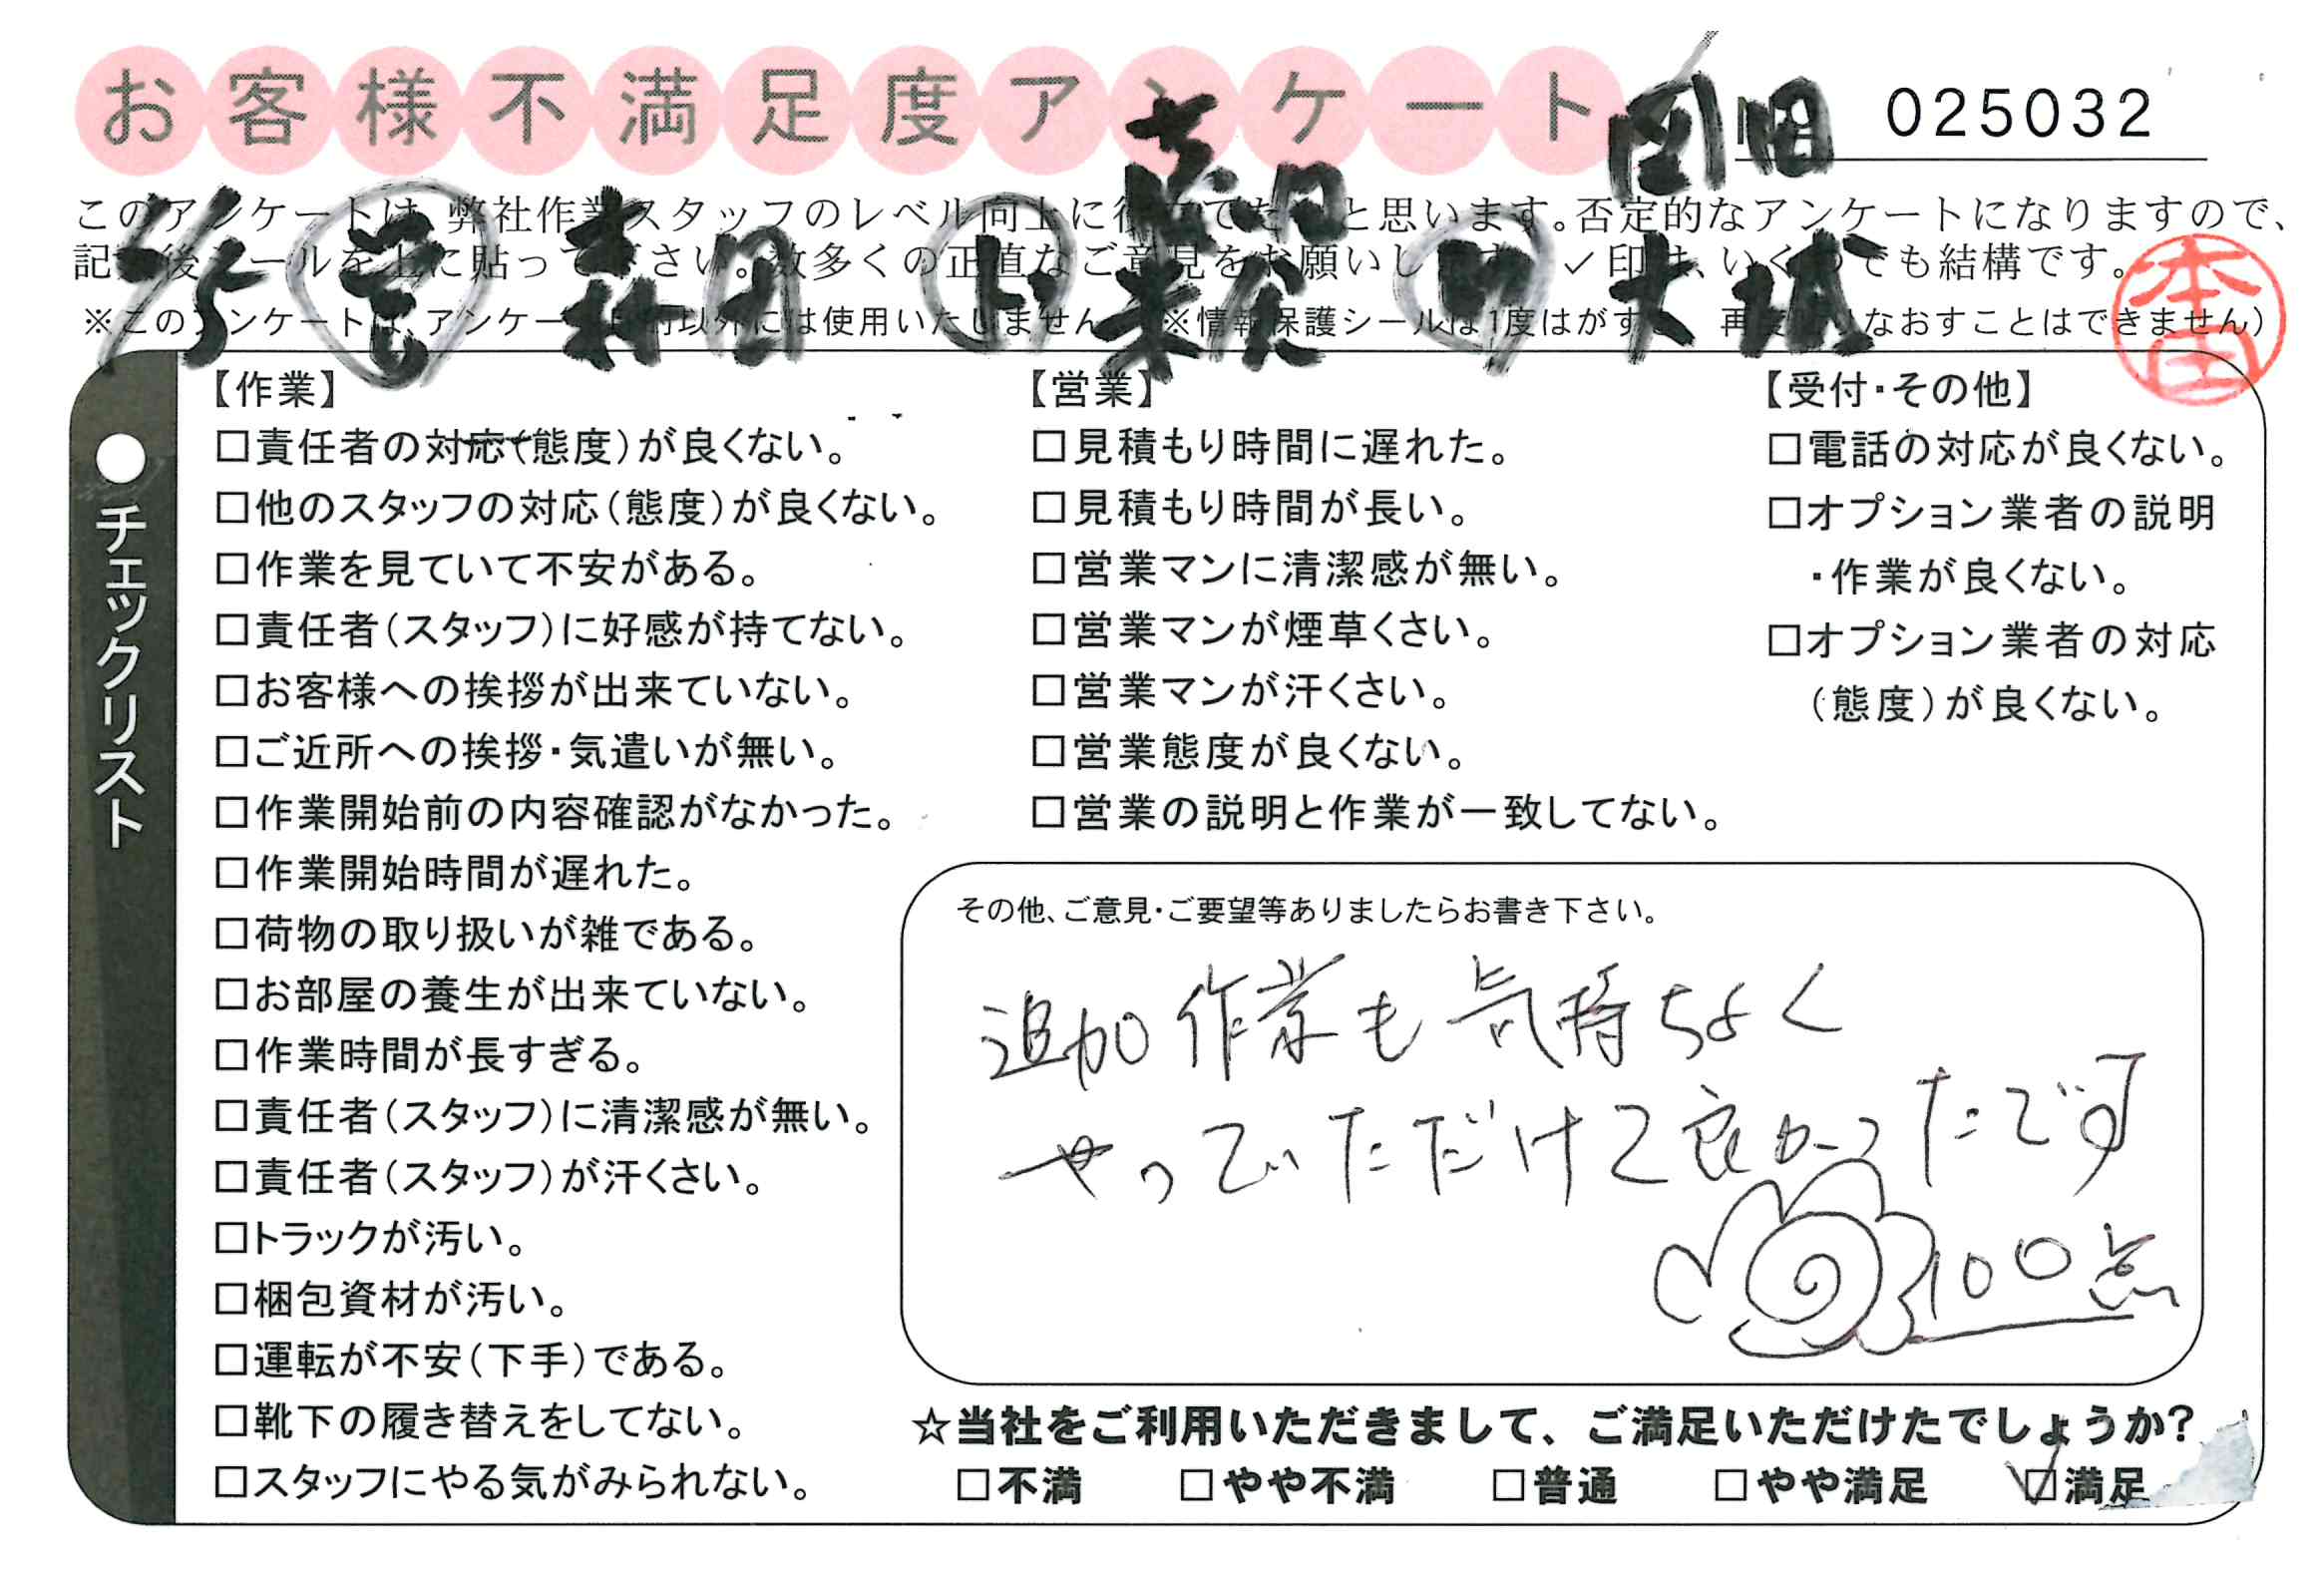 お客様不満足度アンケート
025032
このアンケートは、弊社作業スタッフのレベル向上に てた と思います。否定的なアンケートになりますので、
記 後シールを上に貼って下さい。数多くの正直なご意見をお願いします ✓印は、いくつでも結構です。
※このアンケートは、アンケー 以外には使用いたしません ※情報保護シールは1度はがす 再 なおすことはできません）
2/5 営 森 村 田 ト 米 倉 大 城
本田
●チェックリスト
【作業】
□責任者の対応（態度）が良くない。
□他のスタッフの対応（態度）が良くない。
□作業を見ていて不安がある。
□責任者（スタッフ）に好感が持てない。
□お客様への挨拶が出来ていない。
□ご近所への挨拶・気遣いが無い。
□作業開始前の内容確認がなかった。
□作業開始時間が遅れた。
□荷物の取り扱いが雑である。
□お部屋の養生が出来ていない。
□作業時間が長すぎる。
□責任者（スタッフ）に清潔感が無い。
□責任者（スタッフ）が汗くさい。
□トラックが汚い。
□梱包資材が汚い。
□運転が不安（下手）である。
□靴下の履き替えをしてない。
□スタッフにやる気がみられない。
【営業】
□見積もり時間に遅れた。
□見積もり時間が長い。
□営業マンに清潔感が無い。
□営業マンが煙草くさい。
□営業マンが汗くさい。
□営業態度が良くない。
□営業の説明と作業が一致してない。
【受付・その他】
□電話の対応が良くない。
□オプション業者の説明
・作業が良くない。
□オプション業者の対応
（態度）が良くない。
その他、ご意見・ご要望等ありましたらお書き下さい。
追加作業も気持ちよく
やっていただけて良かったです
100点
☆当社をご利用いただきまして、ご満足いただけたでしょうか？
□不満 □やや不満 □普通 □やや満足 ☑満足